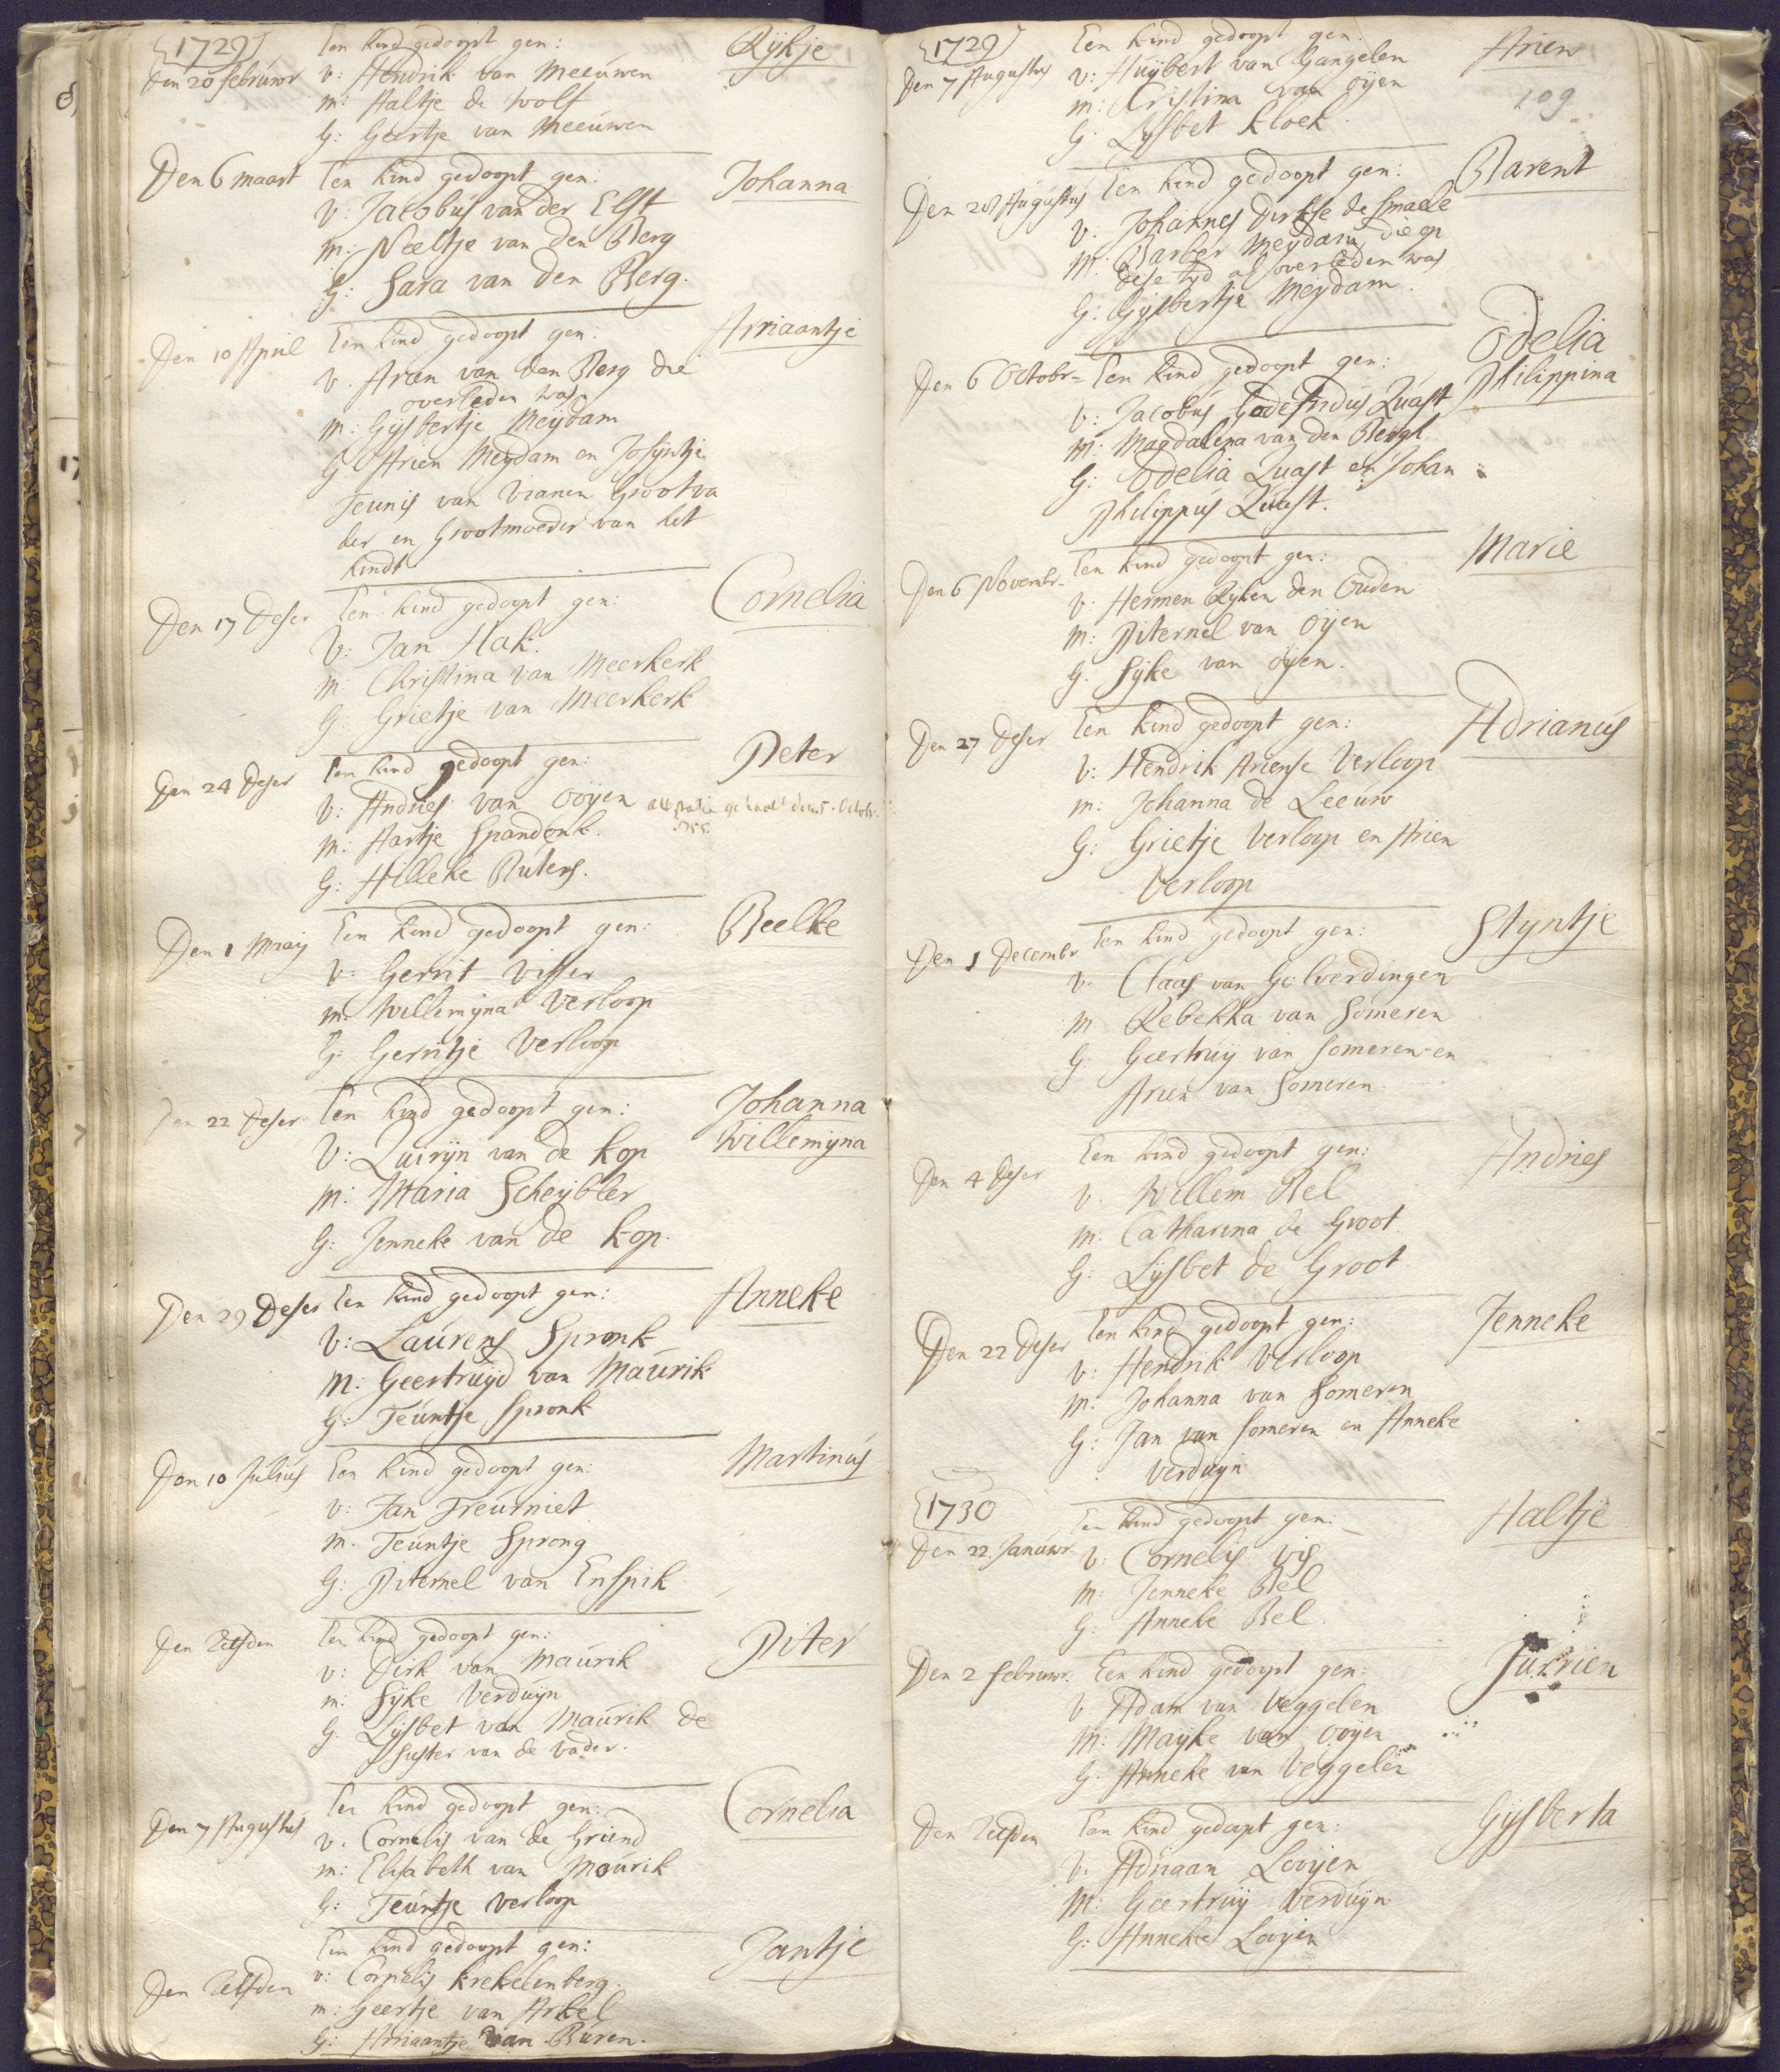 1729
Een kind gedoopt gen: Rijkje
Den 20 februwr v: Hendrik van Meeuwen
m: Aaltje de Wolf
G: Geertje van Meeuwen
Den 6 maart Een kind gedoopt gen: Johanna
v: Jacobus van der Elst
m: Neeltje van den Berg
G: Sara van den Berg.
Den 10 April Een kind gedoopt gen: Arriaantje
v. Aran van den Berg die
overleden was
m: Gijsbertje Meijdam
G Arien Meijdam en Josijntje
Teunis van Vianen Grootva
der en Grootmoeder van het
kindt
Den 17 deser Een kind gedoopt gen: Cornelia
V: Jan Hak.
m: Christina van Meerkerk
G: Grietje van Meerkerk
Den 24 deser Een kind gedoopt gen: Peter
V: Andries van Ooijen
m: Aartje Spandonk.
G: Hilleke Ruters.
Den 1 Maij Een kind gedoopt gen: Beelke
v: Gerrit Visser
m: Willemijna Verloop
G: Gerritje Verloop
Den 22 deser Een kind gedoopt gen: Johanna
Willemijna
V: Quirijn van de Kop
m: Maria Scheijbler
G: Jenneke van de Kop.
Den 29 Deser Een kind gedoopt gen: Anneke
V: Laurens Spronk
m: Geertruijd van Maurik
G: Teuntje Spronk
Den 10 Julius Een kind gedoopt gen: Martinus
v: Jan Treurniet
m. Teuntje Sprong
G: Piternel van Enspik
Den Zelfden Een kind gedoopt gen: Piter
v: Dirk van Maurik
m: Sijke Verduijn
G: Lijsbet van Maurik de
suster van de vader.
Den 7 Augustus Een kind gedoopt gen: Cornelia
v. Cornelis van de Griend
m: Elisabeth van Maurik
G: Teuntje Verloop
Den Zelfden Een kind gedoopt gen: Jantje
v: Cornelis Krekelenberg.
m: Geertje van Arkel
G: Arriaantje van Buren.
1729
Een kind gedoopt gen: Arien
Den 7 Augustus v: Huijbert van Gangelen
m: Cristina van Oijen
109
G. Lijsbet Kloek
Den 28 Augustus Een kind gedoopt gen: Barent
v. Johannes Dirkse de Smaele
m: Barber Meijdam, die op
dese tijd al overleden was
G: Gijsbertje Meijdam.
Den 6 Octobr= Een kind gedoopt gen: Odelia
Philippina
V: Jacobus Godefridus Quast
m: Magdalena van den Bergh
G: Odelia Quast en Johan
Philippus Quast.
Den 6 Novembr. Een kind gedoopt gen: Marie
v. Hermen Rijken den Ouden
m: Piternel van Oijen
G. Sijke van Oijen.
Den 27 deser Een kind gedoopt gen: Adrianus
V: Hendrik Ariense Verloop
m: Johanna de Leeuw
G: Grietje Verloop en Arien
Verloop
Den 1 Decembr. Een kind gedoopt gen: Stijntje
v. Claas van Gelverdingen
m Rebekka van Someren
G. Geertruij van Someren en
Arien van Someren
Den 4 deser Een kind gedoopt gen: Andries
v. Willem Bel
m: Catharina de Groot
G: Lijsbet de Groot
Den 22 deser Een kind gedoopt gen: Jenneke
v: Hendrik Verloop
m: Johanna van Someren
G: Jan van Someren en Anneke
Verduijn
1730
Een kind gedoopt gen: Aaltje
Den 22. Januwr. v: Cornelis Vis
m: Jenneke Bel
G: Anneke Bel.
Den 2 februwr. Een kind gedoopt gen: Jurrien
V Adam van Veggelen
m: Maijke van Ooijen
G. Anneke van Veggelen
Den Zelfden Een kind gedoopt gen: Gijsberta
v. Adriaan Looijen
M: Geertruij Verduijn
G: Anneke Looijen